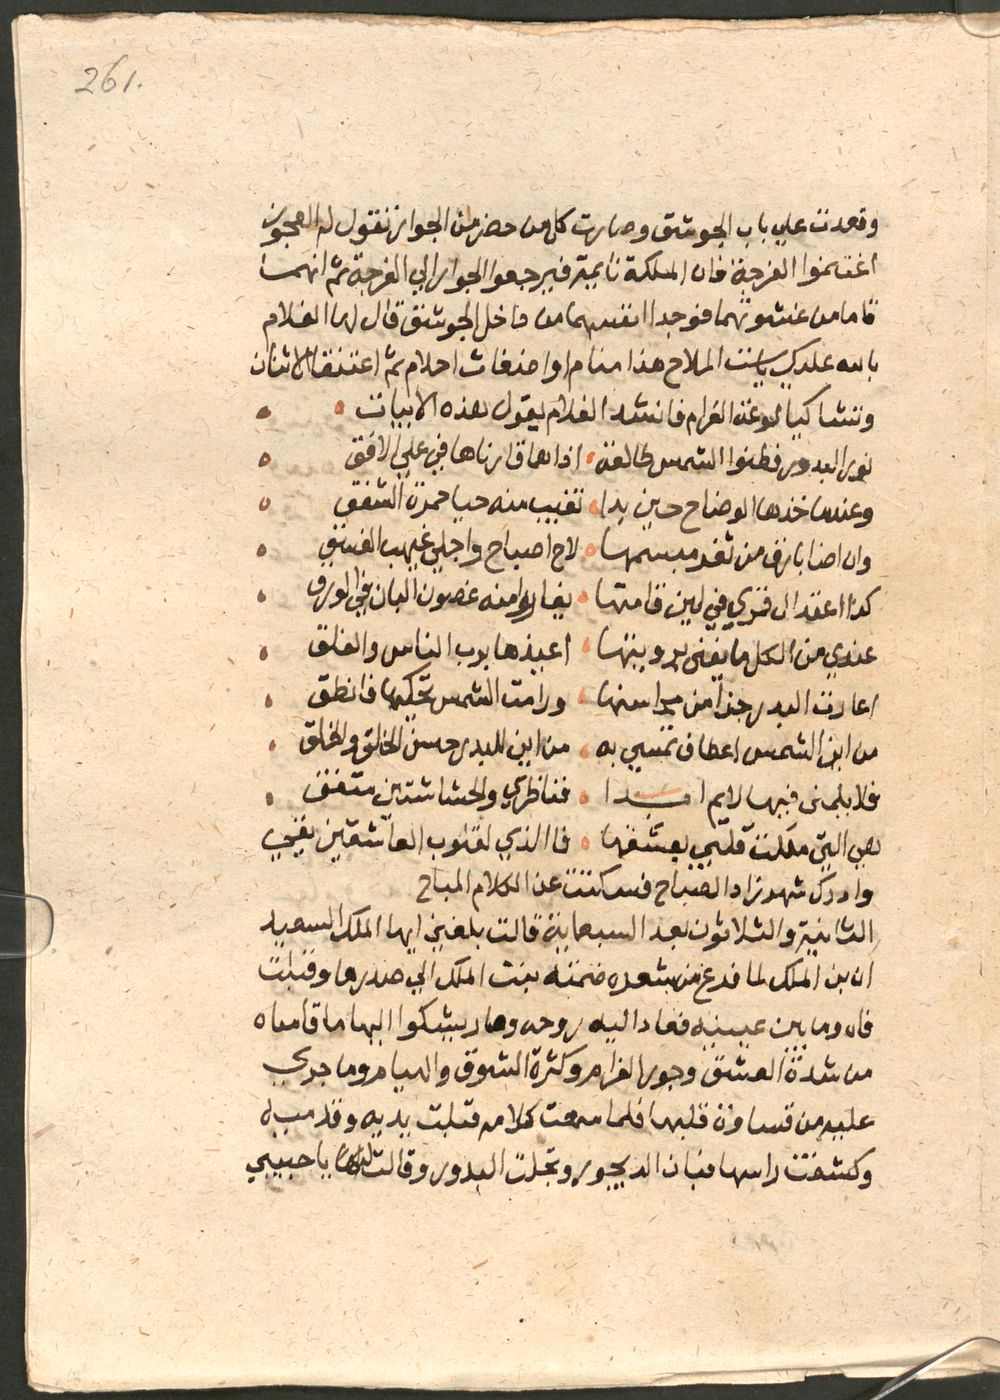 261.
وقعدت علي باب الجوشق وصارت كل من حضر من الجوار تقول لم العجوز
اغتنموا الفرجة فان الملكة نايمة فيرجعوا الجوار الي الفرجة ثم انهما
قاما من غشوتهما فوجدا انفسهما من داخل الجوشق قال لها الغلام
بالله عليكي ياست الملاح هذا منام او اضغاث احلام ثم اعتنقا الاثنان
وتشاكيا لوعة الغرام فانشد الغلام يقول هذه الابيات
نور البدور فظنوا الشمس طالعة اذا بها قارناها في علي الافق
وعندما خذها الوضاح حين بدا تغيب منه حيا حمرة الشفق
وان اضا بارق من ثغر مبسمها لاح اصباح واجلي غيهب الغسق
كذا اعتدال في لين قامتها يغاروا منه غصون البان في الورق
عندي من الكل ما يغني برويتها اعيذها برب الناس والفلق
اعارت البدر جزأ من محاسنها ورامت الشمس تحكيها فا نطق
من اين الشمس اعطاف تمسي به من اين للبدر حسن الخلق والخلق
فلا يلمني فيها لايم ابدا فناظري والحشاشتين متفق
هي التي ملكت قلبي بعشقها فا الذي لقلوب العاشقين بقي
وادرك شهرزاد الصباح فسكتت عن الكلام المباح
الثانية والثلاثون بعد السبعماية قالت بلغني ايها الملك السعيد
ان بن الملك لما فرغ من شعره ضمته بنت الملك الي صدرها وقبلت
فاه وما بين عينيه فعاد اليه روحه وصار يشكوا اليها ما قاساه
من شدة العشق وجور الغرام وكثرة الشوق والهيام وما جري
عليه من قساوة قلبها فلما سمعت كلامه قبلت يديه وقدميه
وكشفت راسها فبان الديجور وتجلت البدور وقالت يا حبيبي